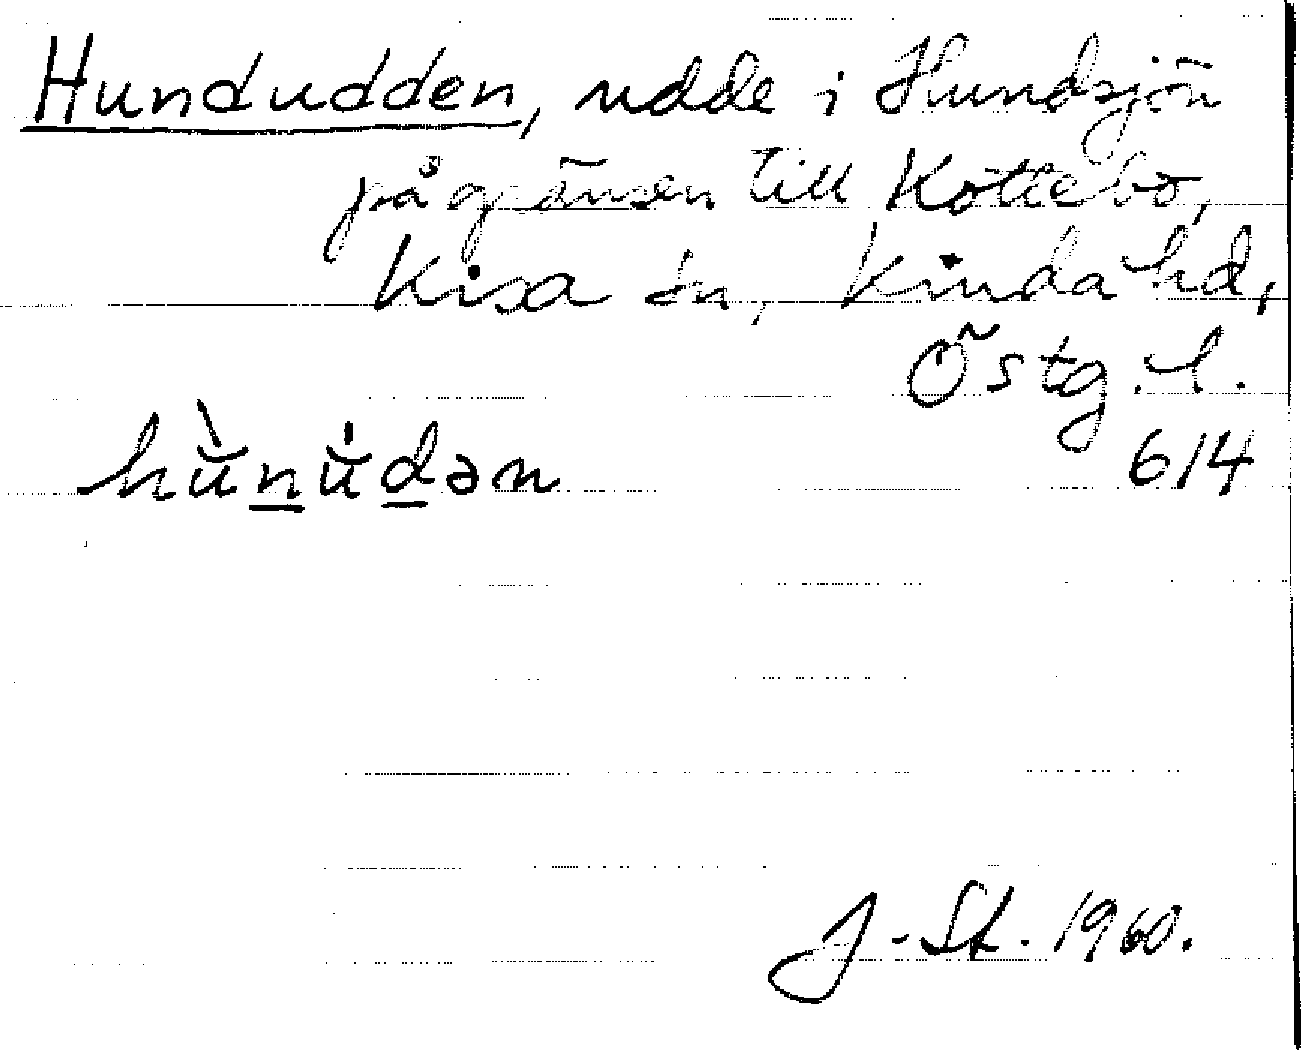 Hundudden, udde i Hundsjön
på gränsen till Köttebo,
Kisa sn, Kinda hd,
Östg. l.
hùnu̇dən 614
J. St. 1960.